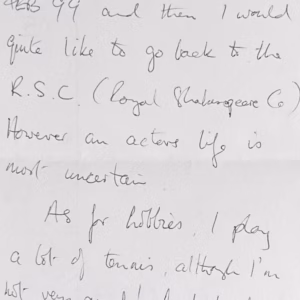 99 and then I would
quite like to go back to the
R.S.C. (Royal Shakespeare Co)
However an actors life is
most uncertain.
As for hobbies, I play
a lot of tennis, although I'm
not very good!